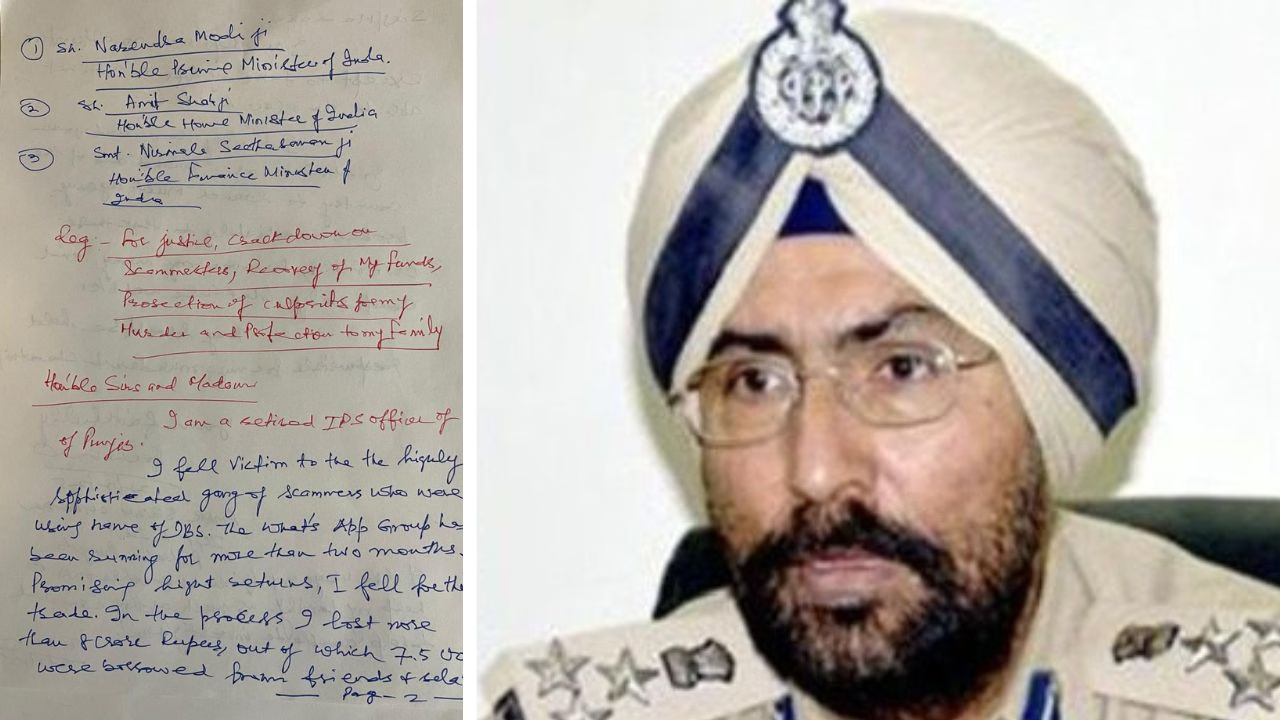 ① Sh. Narendra Modi ji
Hon'ble Prime Minister of India.
② Sh. Amit Shah ji
Hon'ble Home Minister of India
③ Smt. Nirmala Seetharaman ji
Hon'ble Finance Minister of
India
Reg - For justice, crackdown on
Scammesters, Recovery of My funds,
Prosecution of culprits for my
Murder and Protection to my family
Hon'ble Sirs and Madam
I am a retired IPS officer of
of Punjab.
I fell victim to the the highly
sophisticated gang of scammers who were
using name of DBS. The What's App Group ha
been running for more than two months.
Promising hight returns, I fell for the
trade. In the process I lost more
than 8 crore Rupees, out of which 7.5
were borrowed from friends & rela
Pag - 2